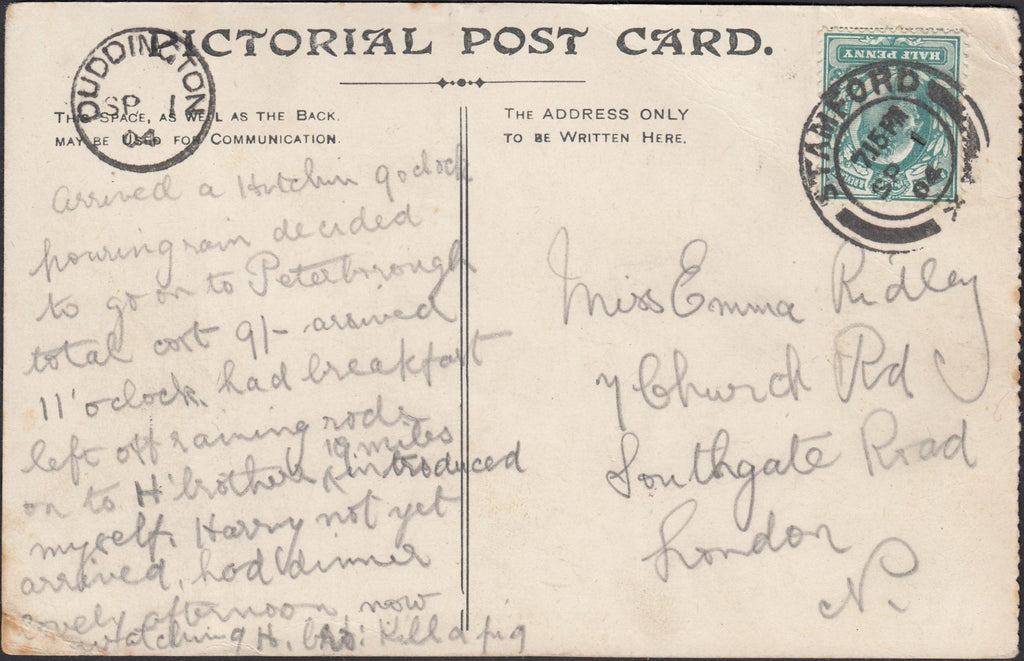 PICTORIAL POST CARD.
DUDDINGTON
SP 1
04
THIS SPACE, AS WELL AS THE BACK.
MAY BE USED FOR COMMUNICATION.
THE ADDRESS ONLY
TO BE WRITTEN HERE.
HALF PENNY
STAMFORD
7.15 PM
SP 1
04
arrived a Hitchin 9oclock
pouring rain decided
to go on to Peterborough
total cost 9/- arrived
11 'oclock, had breakfast
left off raining rode
19 miles
on to H' brothers introduced
myself, Harry not yet
arrived, had dinner
lovely afternoon now
watching H. bro: kill a pig
Miss Emma Ridley
7 Church Rd
Southgate Road
London
N.